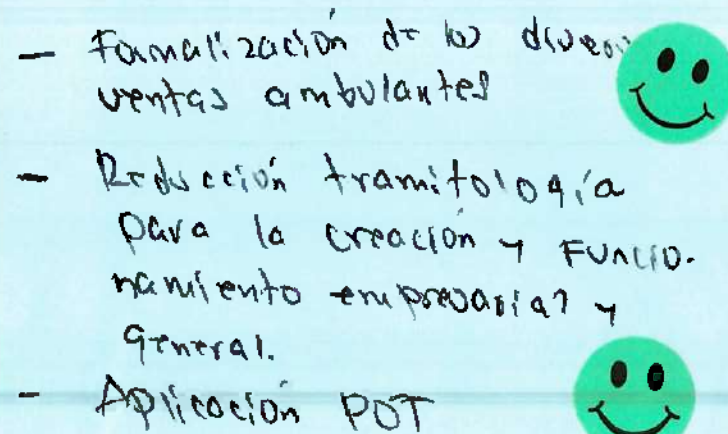 - Formalización de los
ventas ambulantes
- Reducción tramitología
para la creación y Funcio-
namiento empresarial y
General.
- Aplicación POT